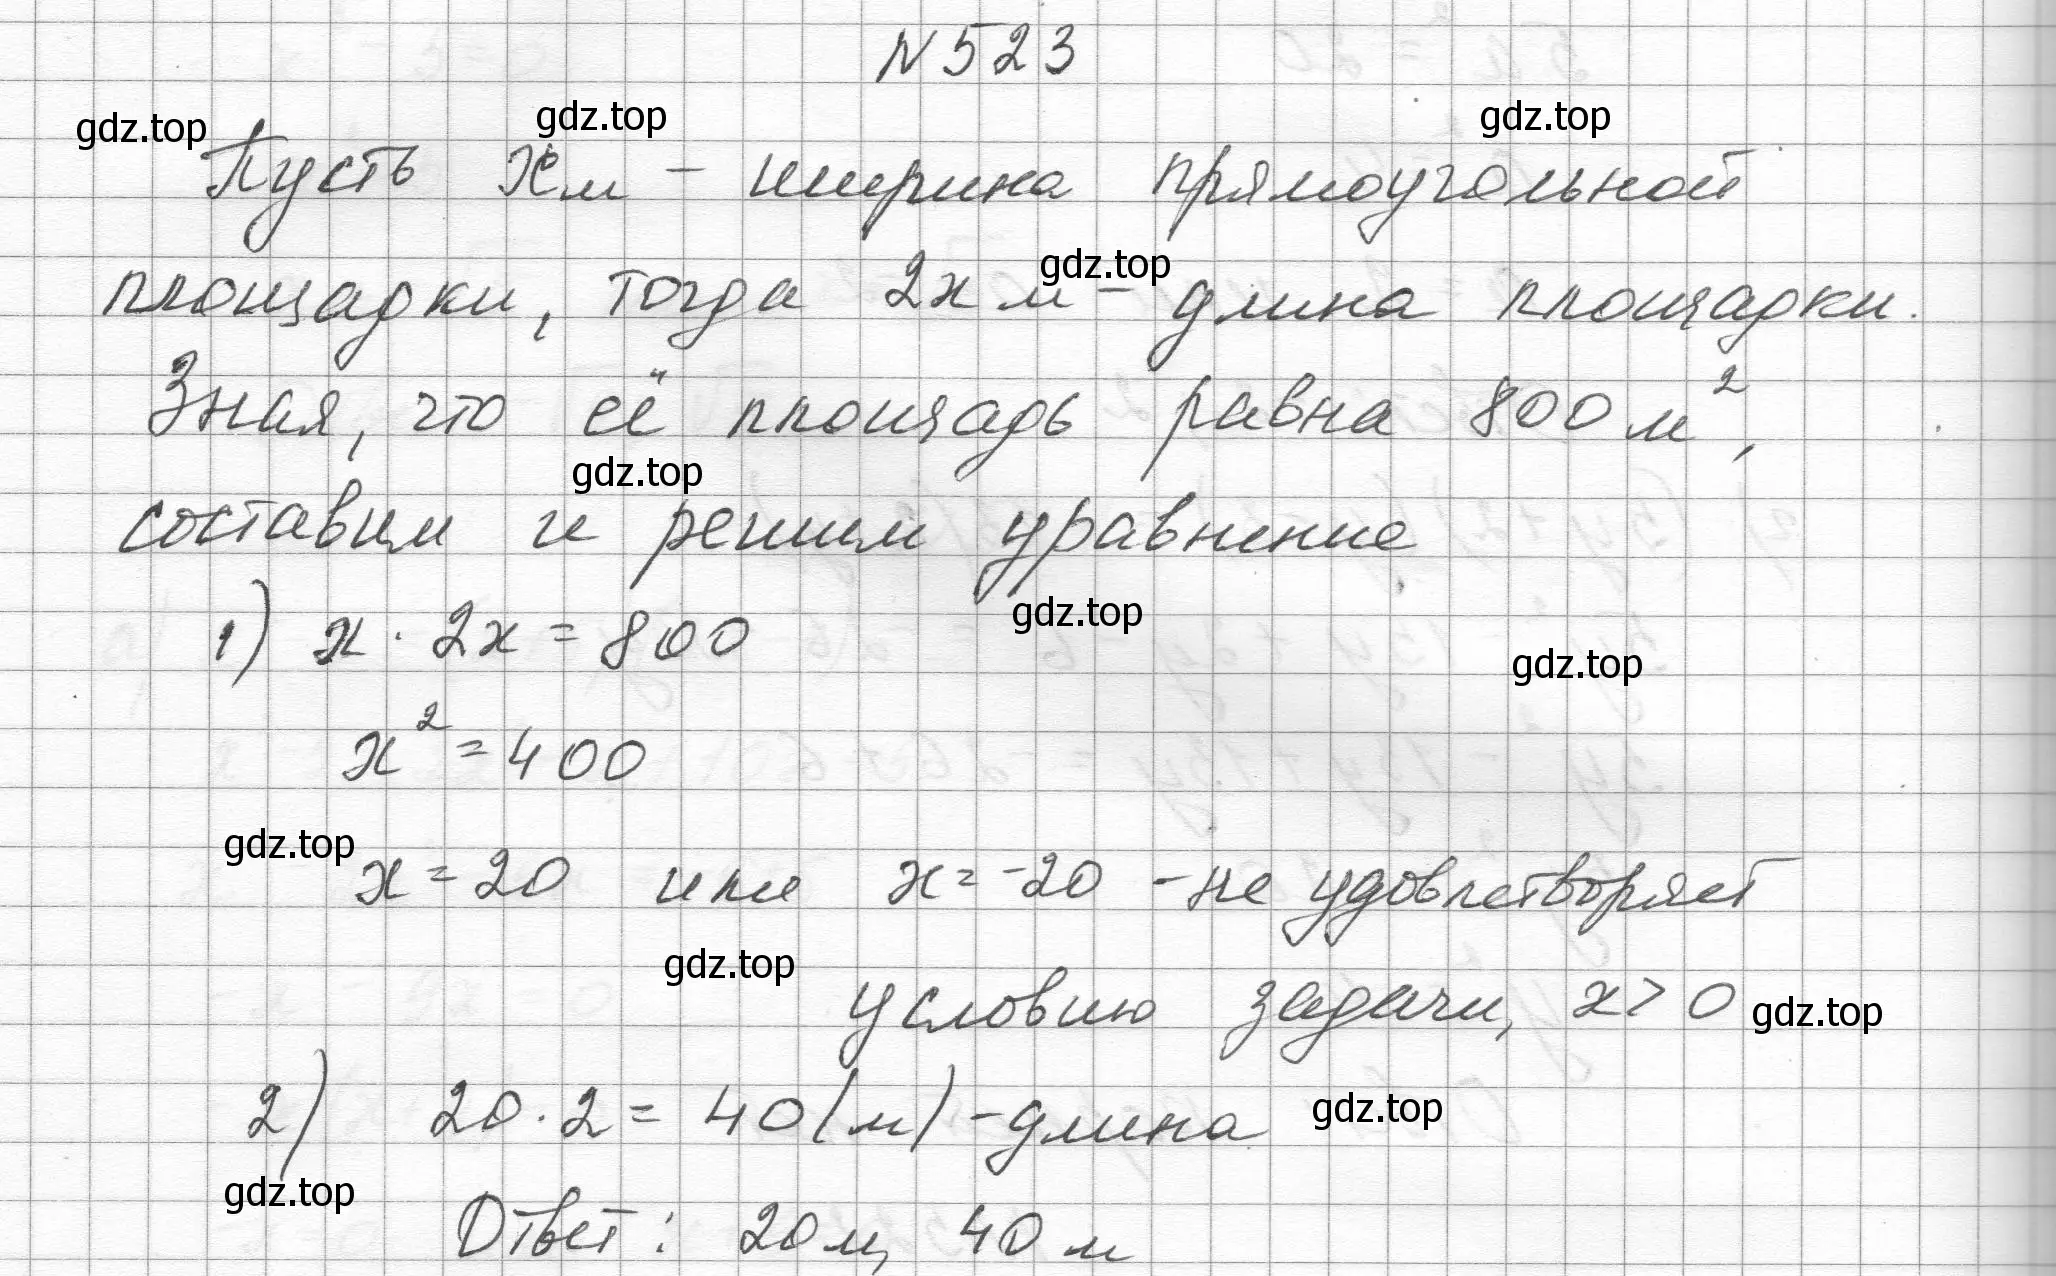 N 523
gdz.top gdz.top gdz.top
Пусть x м - ширина прямоугольной
gdz.top
площадки, тогда 2x м - длина площадки.
Зная, что её площадь равна 800 м²,
gdz.top
составим и решим уравнение
gdz.top
1) x · 2x = 800
gdz.top
x² = 400
gdz.top
x = 20 или x = -20 - не удовлетворяет
gdz.top
условию задачи, x > 0 gdz.top
2) 20 · 2 = 40 (м) - длина gdz.top
gdz.top
Ответ: 20 м, 40 м